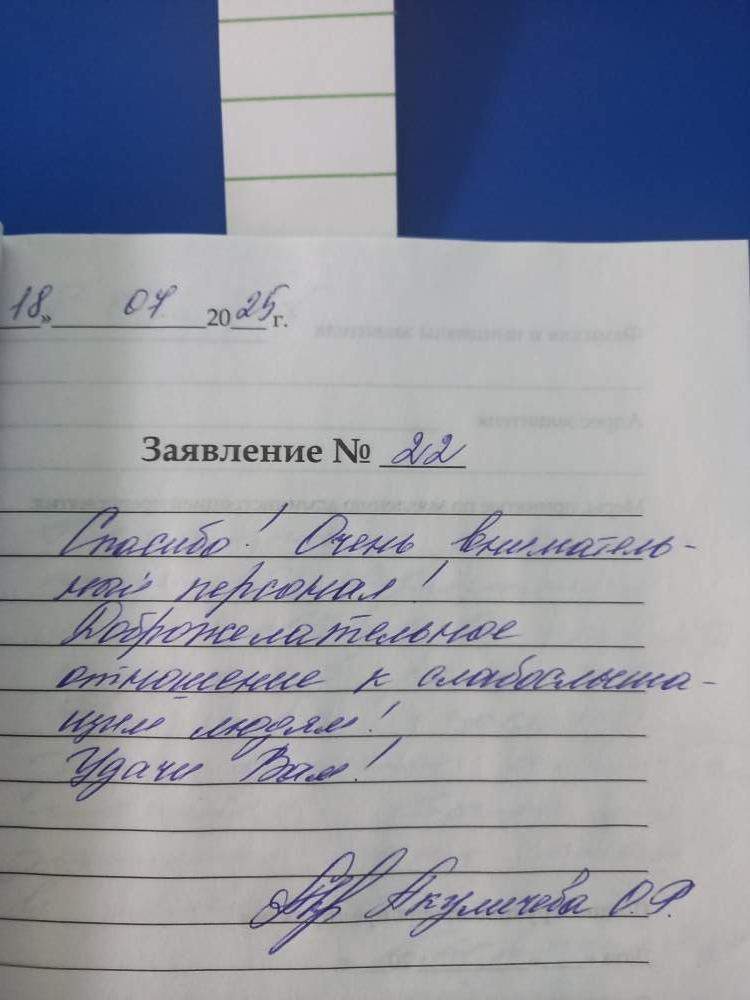 18» 07 2025 г.
Заявление № 22
Спасибо! Очень вниматель-
ный персонал!
Доброжелательное
отношение к слабослыша-
щим людям!
Удачи Вам!
Акуличева О.Р.